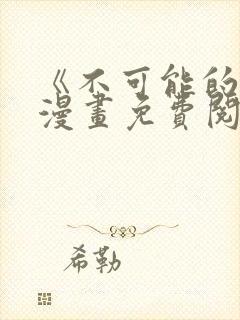 《不可能的
漫畫免費閱
希勒